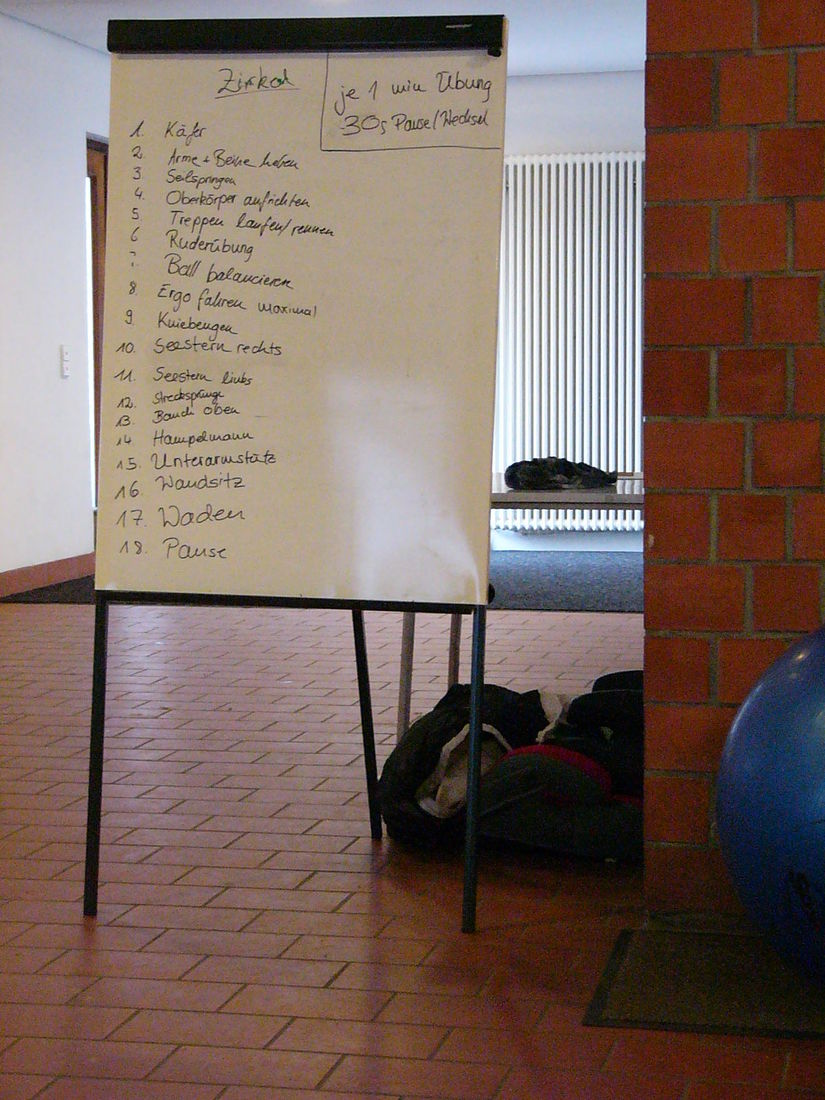 Zirkel
je 1 min Übung
30s Pause/Wechsel
1. Käfer
2. Arme + Beine heben
3 Seilspringen
4. Oberkörper aufrichten
5. Treppen laufen/rennen
6 Ruderübung
7 Ball balancieren
8. Ergo fahren maximal
9. Kniebeugen
10. Seestern rechts
11. Seestern links
12. Strecksprünge
13. Bauch oben
14 Hampelmann
15. Unterarmstütz
16. Wandsitz
17. Waden
18. Pause